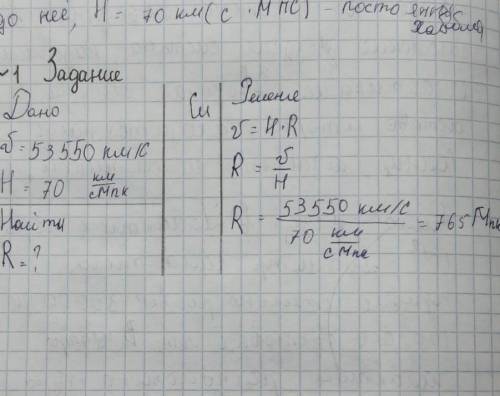 до неё, H = 70 км/(с · Мпс) - постоянная
Хаббла
~1 Задание
Дано
v = 53550 км/с
H = 70 км/сМпк
Найти
R = ?
Си
Решение
v = H · R
R = v/H
R = 53550 км/с / 70 км/сМпк = 765 Мпк